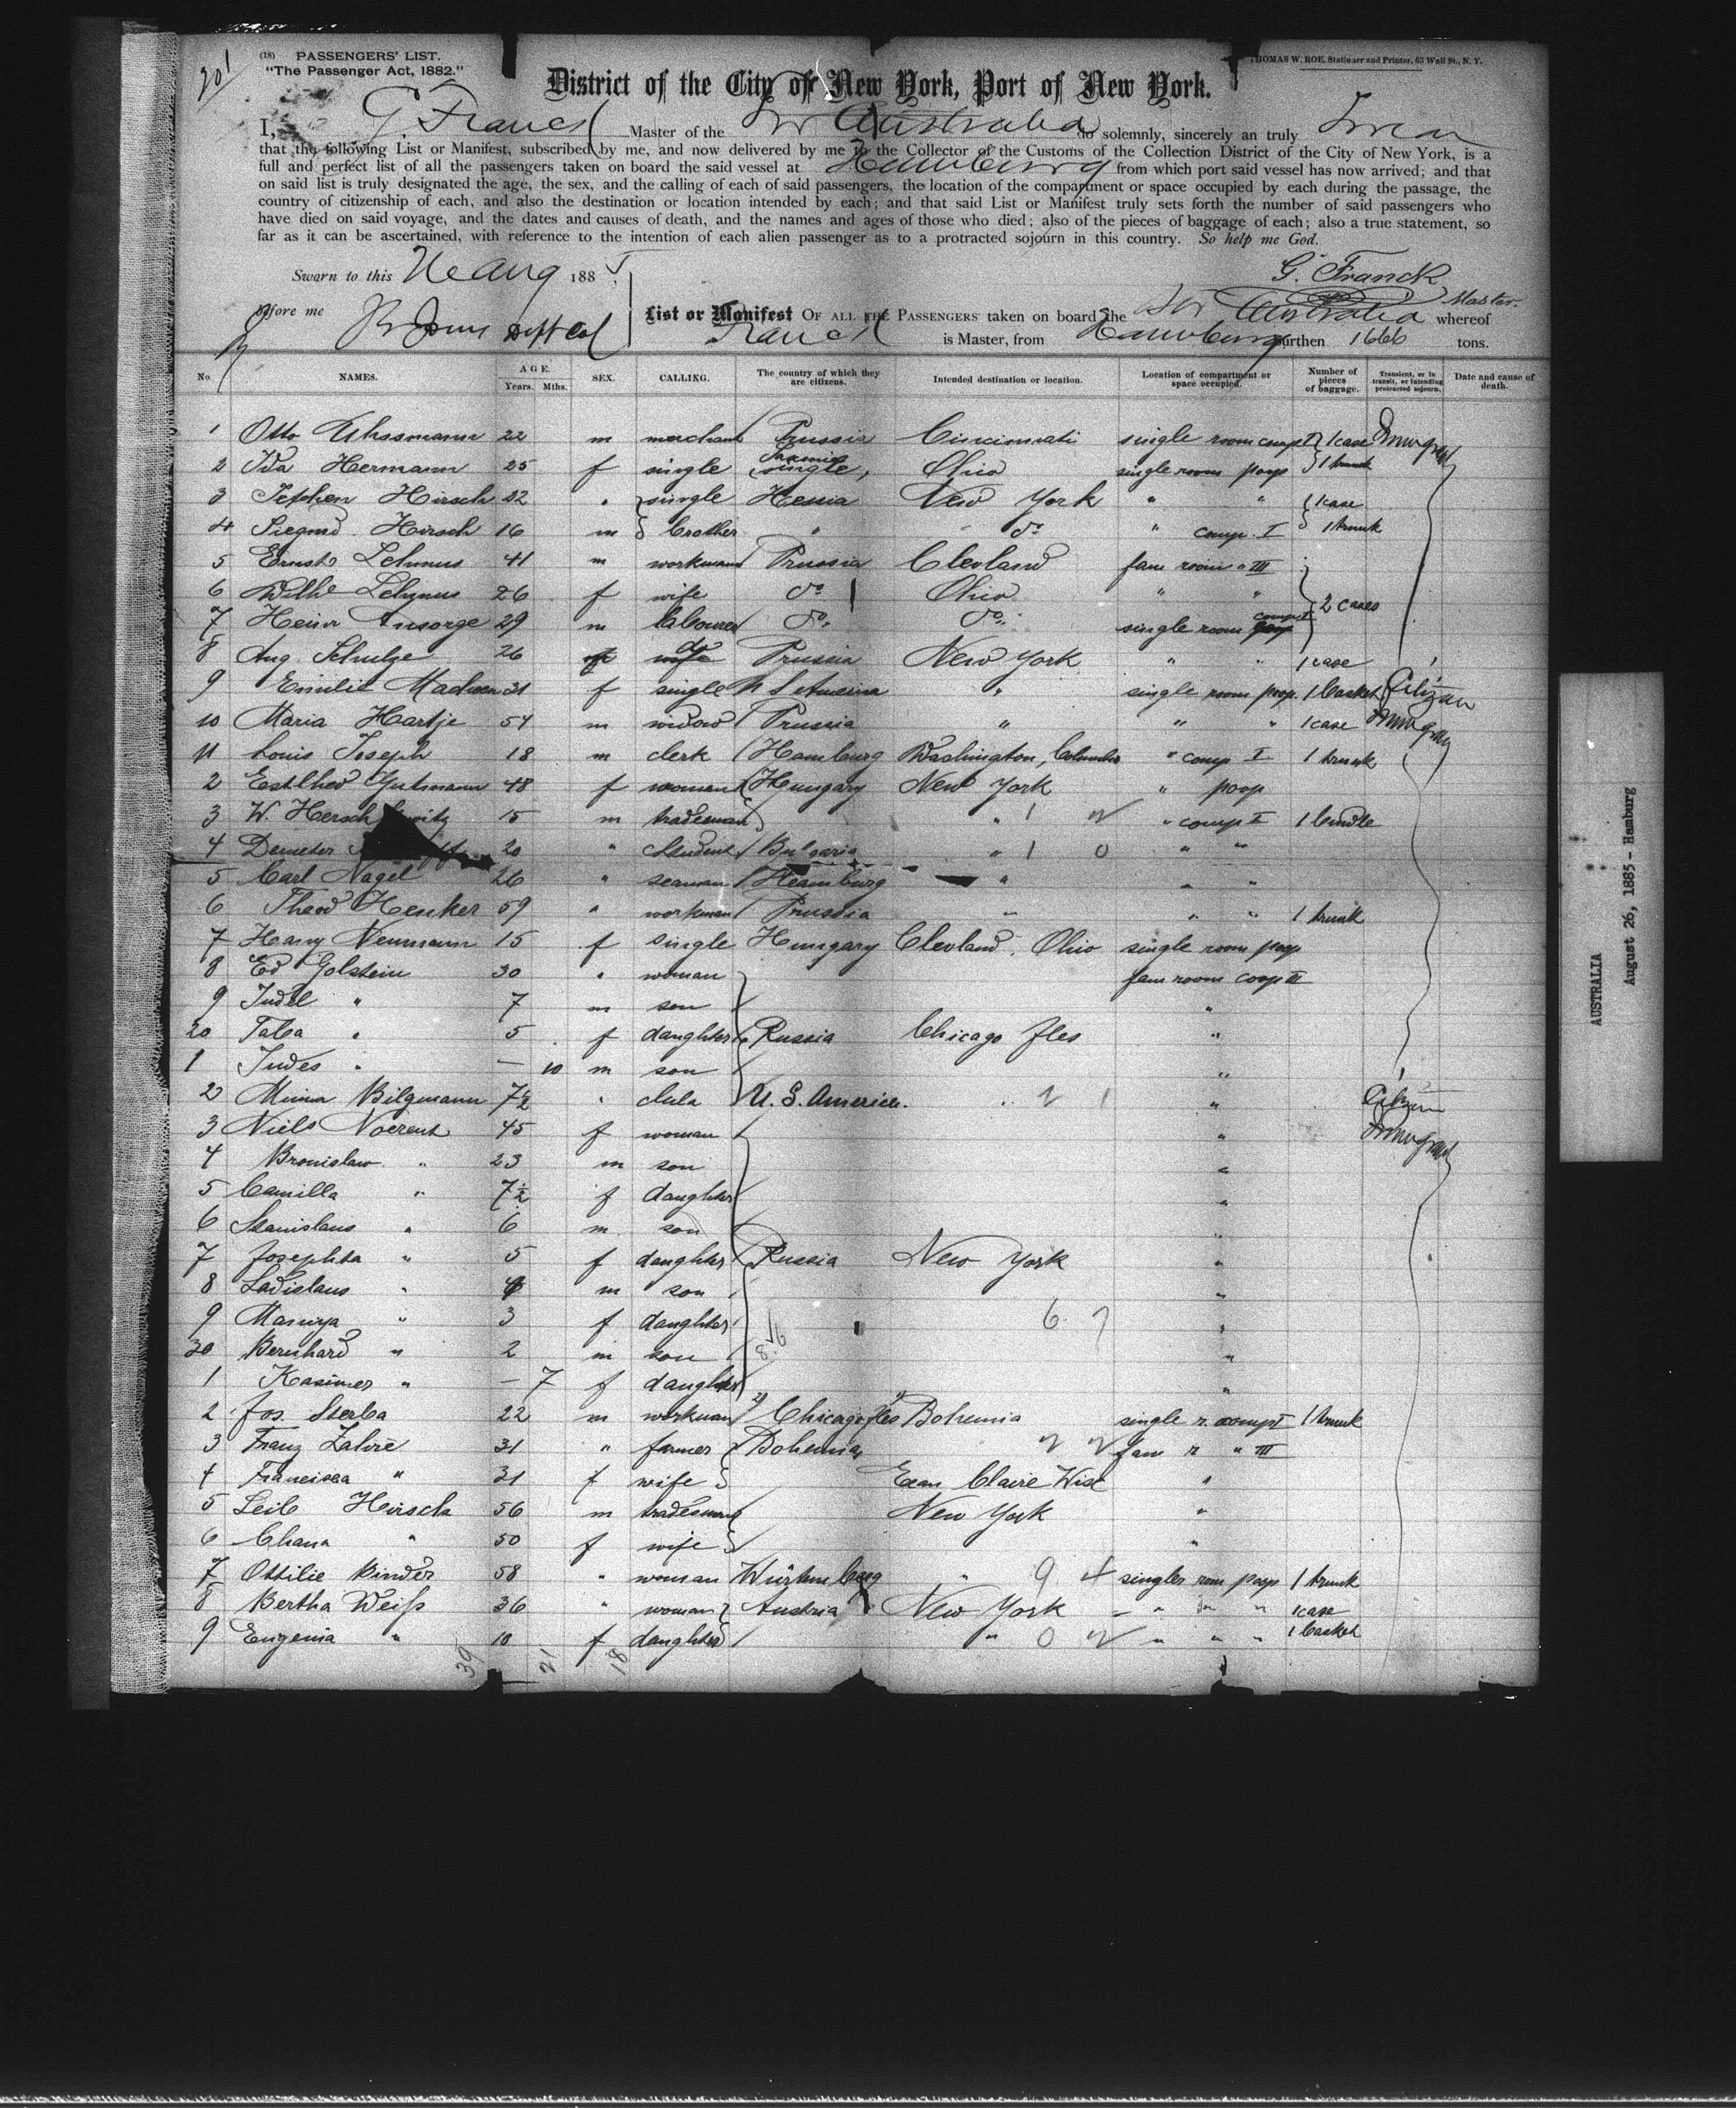 201
(18) PASSENGERS' LIST.
"The Passenger Act, 1882."
THOMAS W. ROE, Stationer and Printer, 63 Wall St., N. Y.
District of the City of New York, Port of New York.
I, G. Franck Master of the Str Australia do solemnly, sincerely an truly Swear
that the following List or Manifest, subscribed by me, and now delivered by me to the Collector of the Customs of the Collection District of the City of New York, is a
full and perfect list of all the passengers taken on board the said vessel at Hamburg from which port said vessel has now arrived; and that
on said list is truly designated the age, the sex, and the calling of each of said passengers, the location of the compartment or space occupied by each during the passage, the
country of citizenship of each, and also the destination or location intended by each; and that said List or Manifest truly sets forth the number of said passengers who
have died on said voyage, and the dates and causes of death, and the names and ages of those who died; also of the pieces of baggage of each; also a true statement, so
far as it can be ascertained, with reference to the intention of each alien passenger as to a protracted sojourn in this country. So help me God.
Sworn to this Aug 1885 G. Franck
before me List or Manifest OF ALL THE PASSENGERS taken on board the Str Australia Master. whereof
Franck is Master, from Hamburg burthen 1666 tons.
No. NAMES. AGE. Years. Mths. SEX. CALLING. The country of which they are citizens. Intended destination or location. Location of compartment or space occupied. Number of pieces of baggage. Transient, or in transit, or intending protracted sojourn. Date and cause of death.
1 Otto 22 m merchant Prussia Cincinnati single room comp I 1 case
2 Ida Hermann 25 f single Saxonia single, Ohio single room poop 1 trunk
3 Hirsch 22 " single Hessia New York " " 1 case
4 Siegmd. Hirsch 16 m brother " do " comp. I 1 trunk
5 Ernst Lehmus 41 m workman Prussia Clevland fam room " III
6 Wilhe Lehmus 26 f wife do Ohio " " 2 cases
7 Heinr Ansorge 29 m labourer do. do. single room comp I
8 Aug. Schulze 26 do Prussia New York " " 1 case
9 Emilie Madsen 31 f single U S America " single room poop. 1 basket Citizen
10 Maria Hartje 54 m widow Prussia " " " 1 case
11 Louis Joseph 18 m clerk Hamburg Washington, Columbia " comp I 1 trunk
2 Gutmann 48 f woman Hungary New York " poop
3 W. Hersch witz 15 m tradesman " 1 2 " comp I 1 bundle
4 Demeter 20 " Student Bulgaria " 1 0 " "
5 Carl Nagel 26 " seaman Hamburg " " "
6 Theod Henker 59 " workman Prussia " " " 1 trunk
7 Hany Neumann 15 f single Hungary Clevland, Ohio single room poop
8 Ed Golstein 30 " woman fam room coop III
9 Judel " 7 m son "
20 Taba " 5 f daughter Russia Chicago Iles "
1 Judes " — 10 m son "
2 Minna Bilgmann 7½ " U. S. America. " 2 1 " Citizen
3 Niels 45 f woman "
4 Bronislaw " 23 m son "
5 Camilla " 7½ f daughter "
6 Stanislaus " 6 m son "
7 Josephta " 5 f daughter Russia New York "
8 Ladislaus " 4 m son "
9 " 3 f daughter 6 7 "
30 Bernhard " 2 m son "
1 Kasimer " — 7 f daughter "
2 Jos. Sterba 22 m workman Chicago Iles Bohemia single r. comp I 1 trunk
3 Franz 31 " farmer Bohemia 2 2 fam r " III
4 Francisca " 31 f wife Eau Claire Wisc "
5 Leib Hirsch 56 m tradesman New York "
6 Chana " 50 f wife "
7 Ottilie Binder 58 " woman Würtemberg " 9 4 singler room poop 1 trunk
8 Bertha Weiss 36 " woman Austria New York " " " 1 case
9 Eugenia " 10 f daughter " 0 2 " " " 1 basket
39 21 18
AUSTRALIA
August 26, 1885 - Hamburg